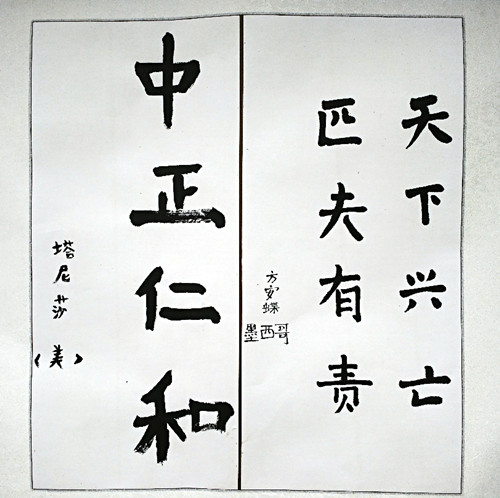 天下兴亡
匹夫有责
方安蝶
墨西哥
中正仁和
塔尼莎（美）